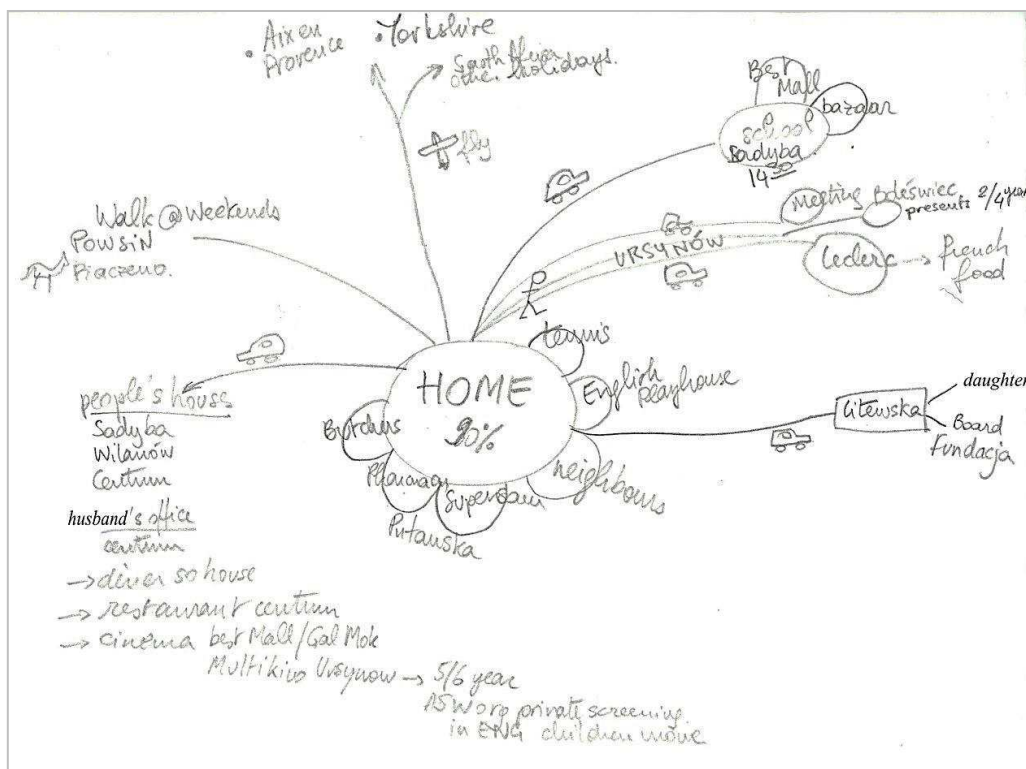 • Aix en
Provence
• Yorkshire
South Africa
other holidays.
fly
Best
Mall
bazaar
school
Sadyba
14 30
Meeting Boleświec
presents 2/4 year
URSYNÓW
Leclerc → french
food
Walk @ Weekends
Powsin
Piaczeno.
tennis
English
Playhouse
HOME
90%
neighbours
Supersam
Pharmacy
Butchers
Putawska
Litewska
daughter
Board
Fundacja
people's house
Sadyba
Wilanów
Centum
husband's office
centrum
→ diner so house
→ restaurant centrum
→ cinema best Mall/Gal Mok
Multikino Ursynow → 5/6 year
private screening
in ENG children movie